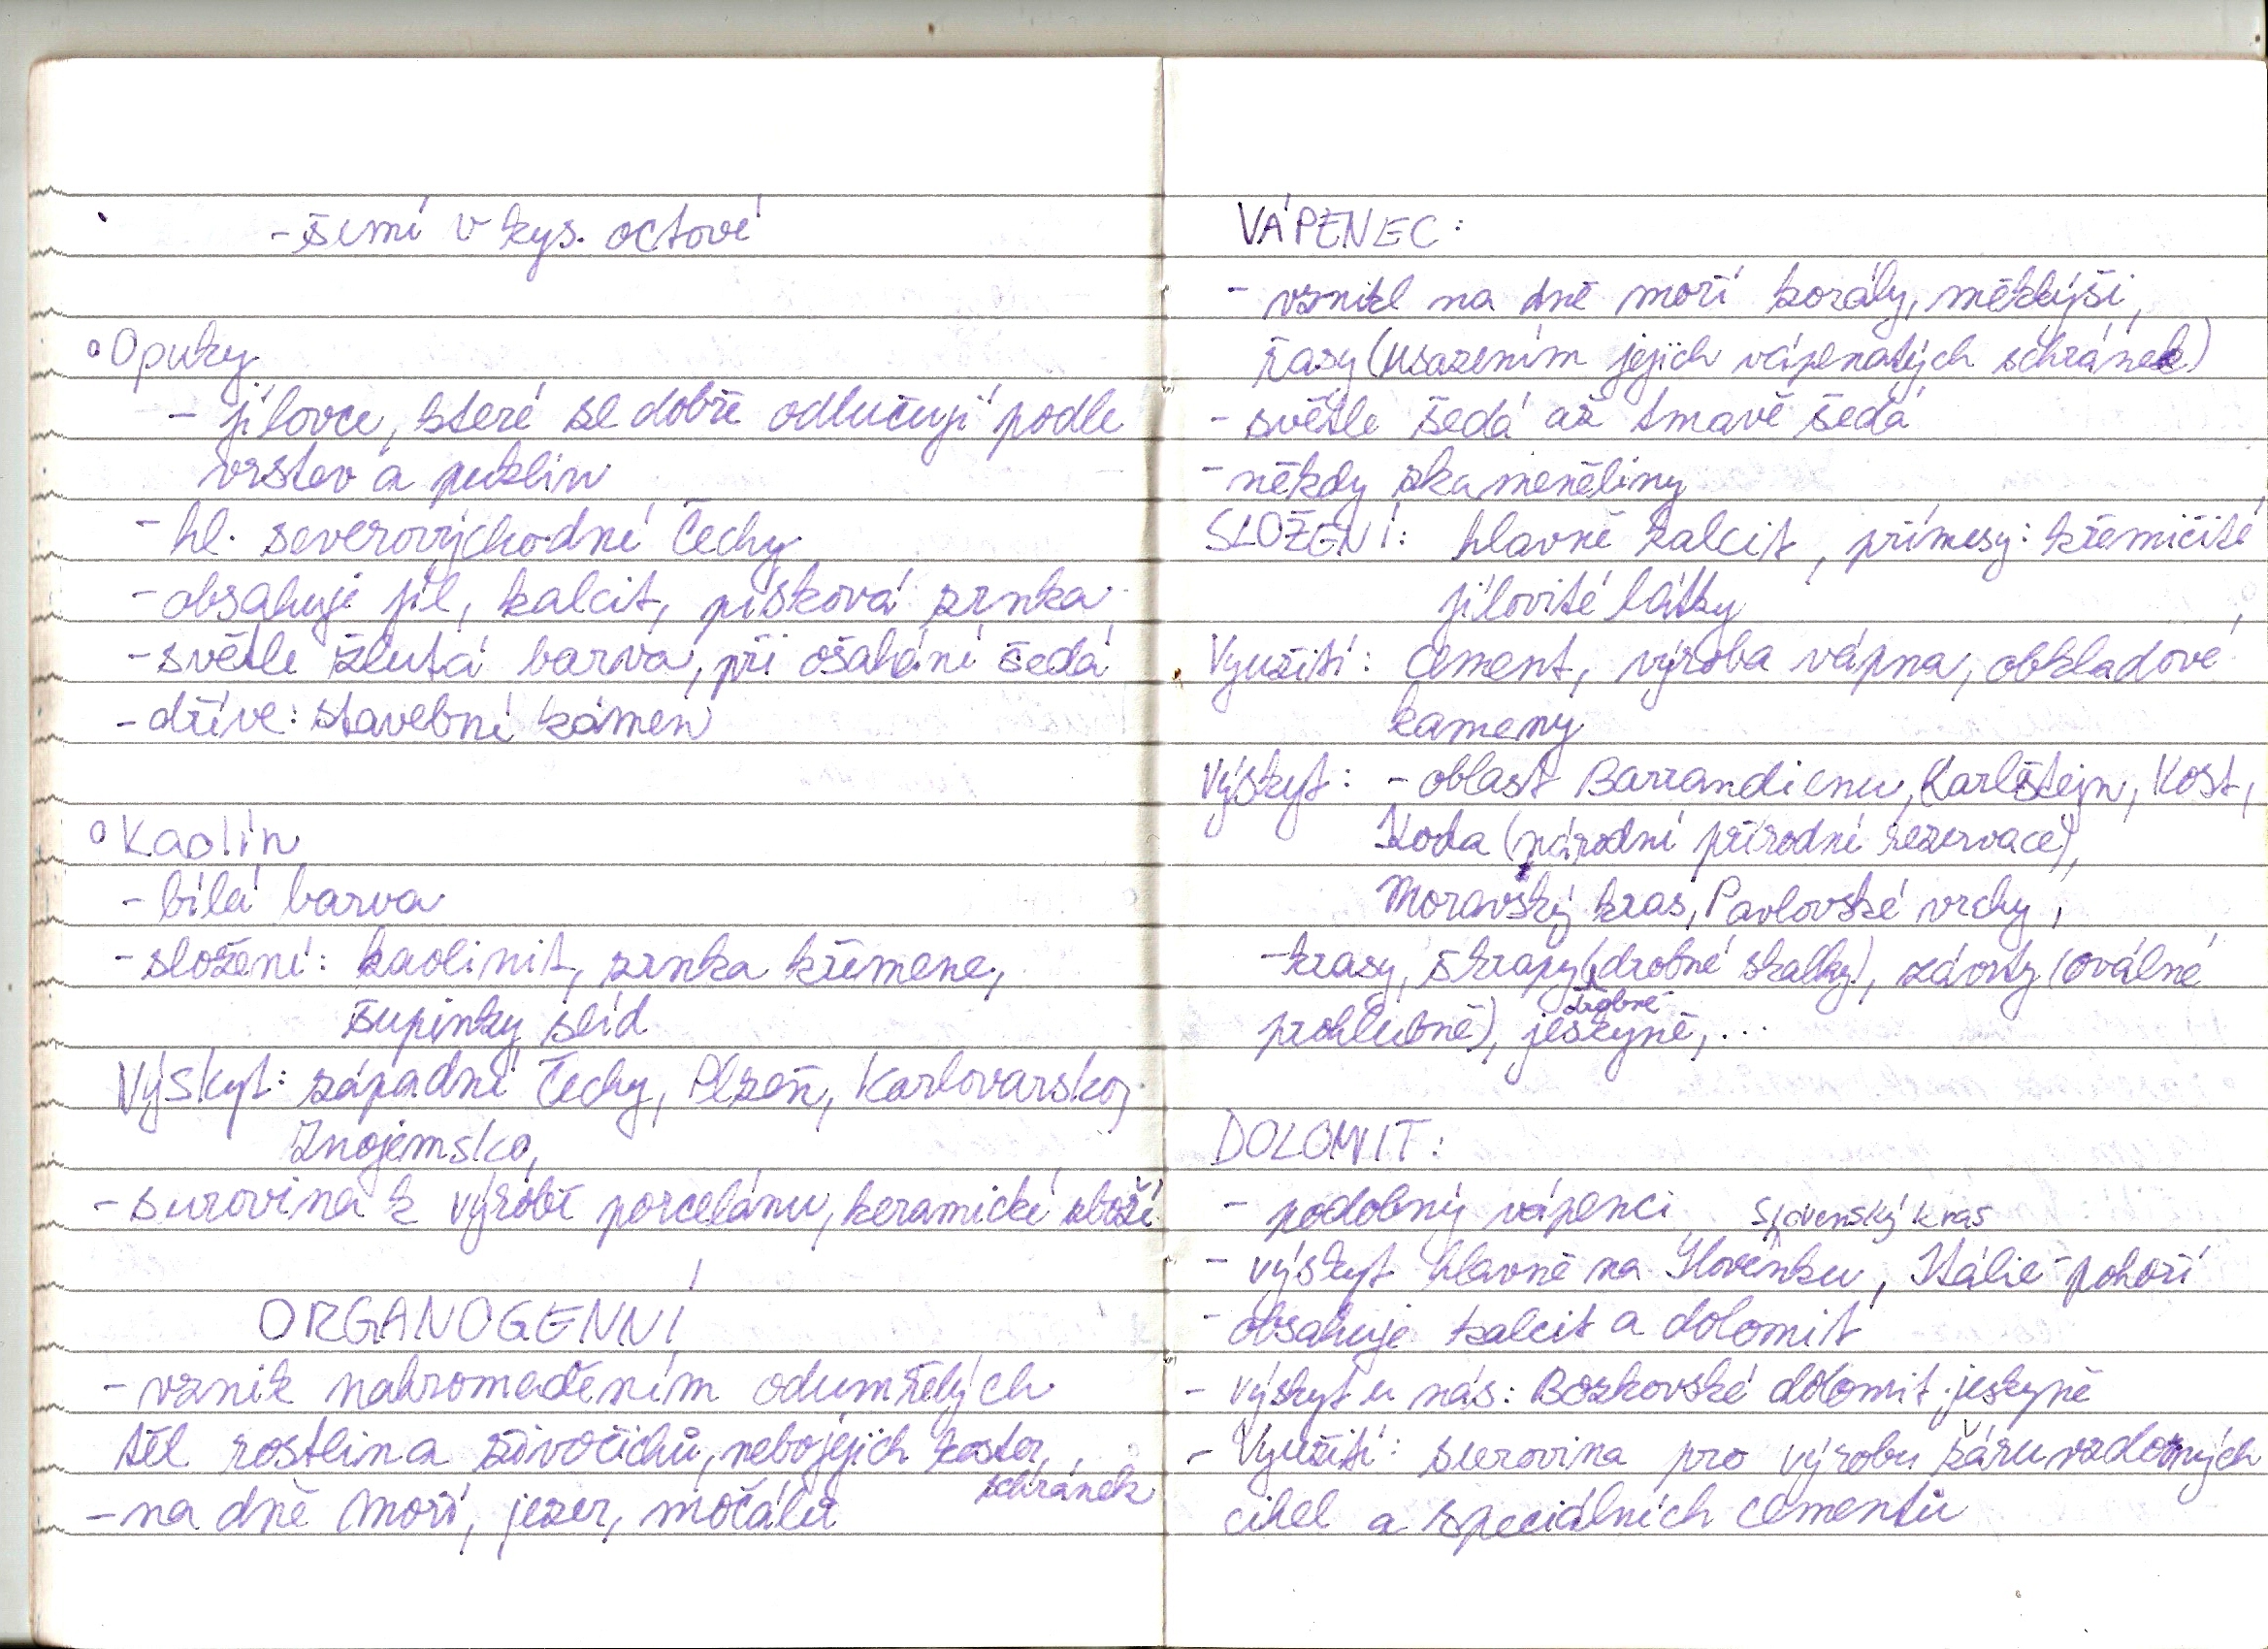 - šumí v kys. octové
° Opuky
- jílovce, které se dobře odlučují podle
vrstev a puklin
- hl. severovýchodní Čechy
- obsahuje jíl, kalcit, písková zrnka
- světle žlutá barva, při ošahání šedá
- dříve: stavební kámen
° Kaolín
- bílá barva
- složení: kaolinit, zrnka křemene,
šupinky slíd
Výskyt: západní Čechy, Plzeň, Karlovarsko,
Znojemsko,
- surovina k výrobě porcelánu, keramické zboží
ORGANOGENNÍ
- vznik nahromaděním odumřelých
těl rostlin a živočichů, nebo jejich koster,
schránek
- na dně moří, jezer, močálů
VÁPENEC:
- vznikl na dně moří korály, měkkýši,
řasy (usazením jejich vápenatých schránek)
- světle šedá až tmavě šedá
- někdy zkameněliny
SLOŽENÍ: hlavně kalcit, přímesy: křemičité,
jílovité látky
Využití: cement, výroba vápna, obkladové
kameny
Výskyt: - oblast Barrandienu, Karlštejn, Kost,
Koda (národní přírodní rezervace),
Moravský kras, Pavlovské vrchy,
- krasy, škrapy (drobné skalky), závrty (oválné
prohlubně), jeskyně, ...
DOLOMIT:
- podobný vápenci
Slovenský kras
- výskyt hlavně na Slovensku, Itálie - pohoří
- obsahuje kalcit a dolomit
- výskyt u nás: Bozkovské dolomit. jeskyně
- Využití: surovina pro výrobu žáruvzdorných
cihel a speciálních cementů